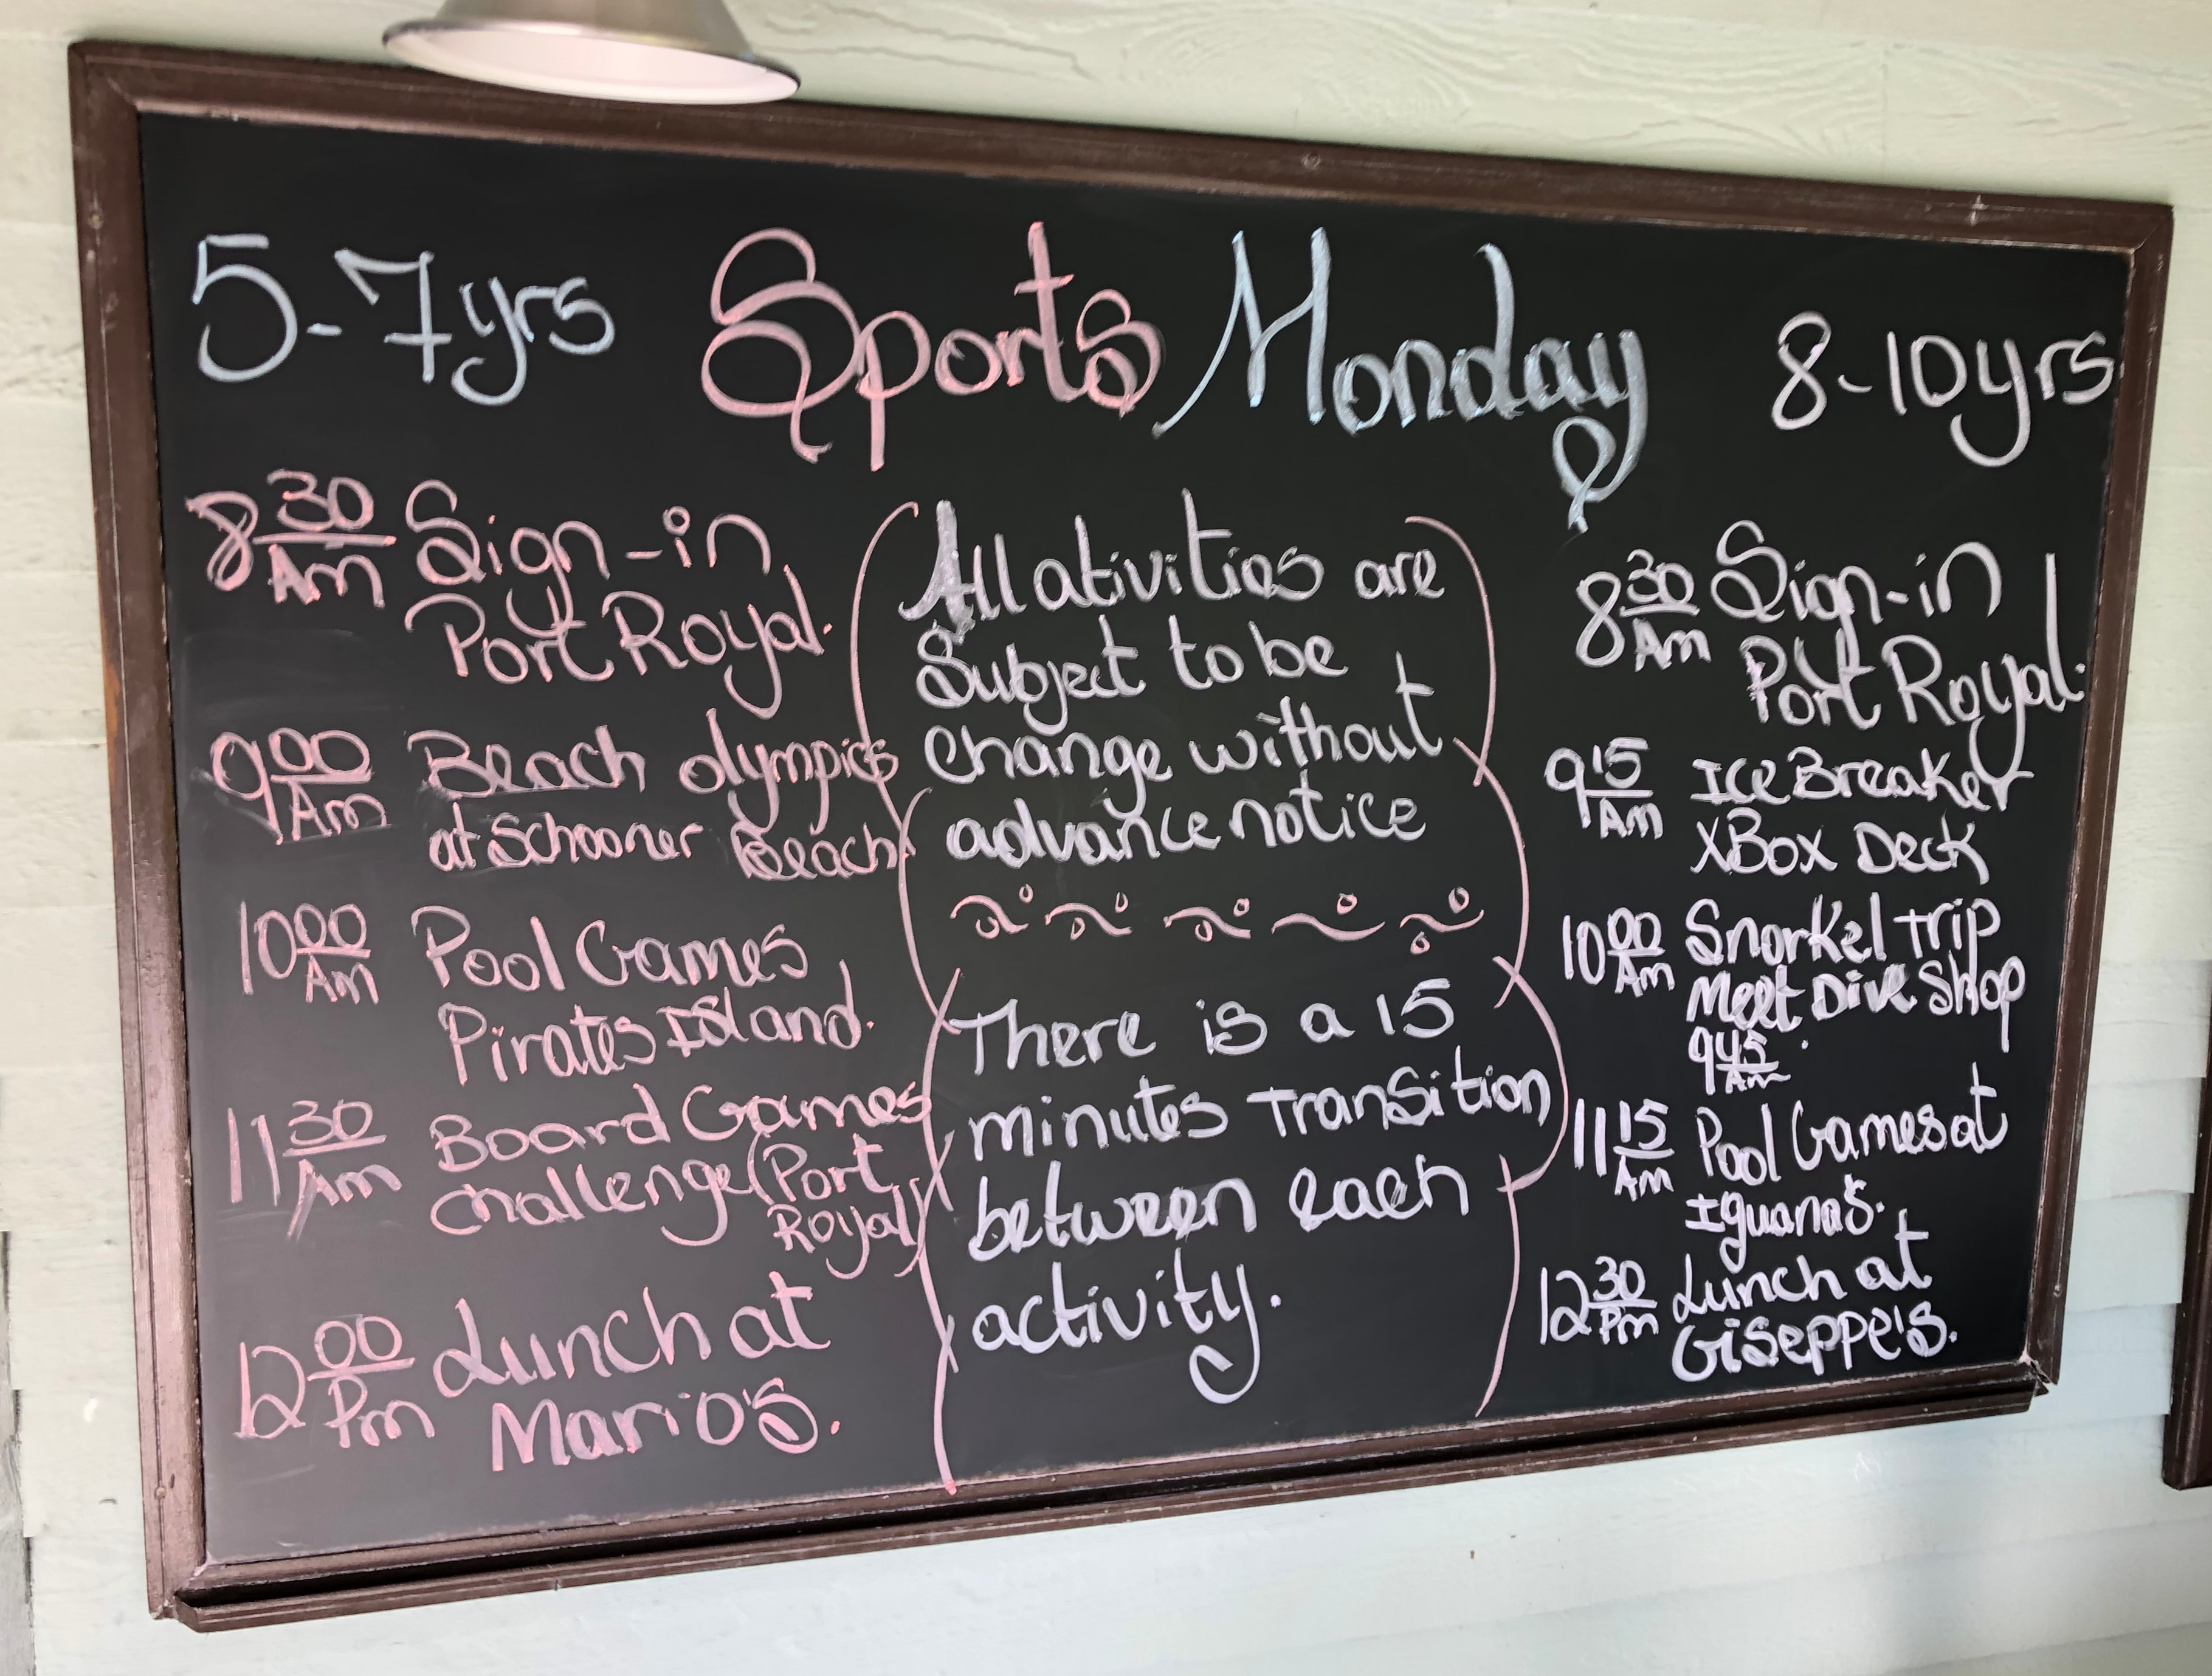 5-7yrs Sports Monday 8-10yrs
8 30 Am Sign-in
Port Royal.
9 00 Am Beach olympics
at Schooner Beach
10 00 Am Pool Games
Pirates Island.
11 30 Am Board Games
challenge (Port
Royal)
12 00 Pm Lunch at
Mario's.
All ativities are
Subject to be
change without
advance notice
There is a 15
minutes Transition
between each
activity.
8 30 Am Sign-in
Port Royal.
9 15 Am Ice Breaker
XBox Deck
10 00 Am Snorkel trip
Meet Dive Shop
9 45 Am
11 15 Am Pool Games at
Iguana's.
12 30 Pm Lunch at
Giseppe's.